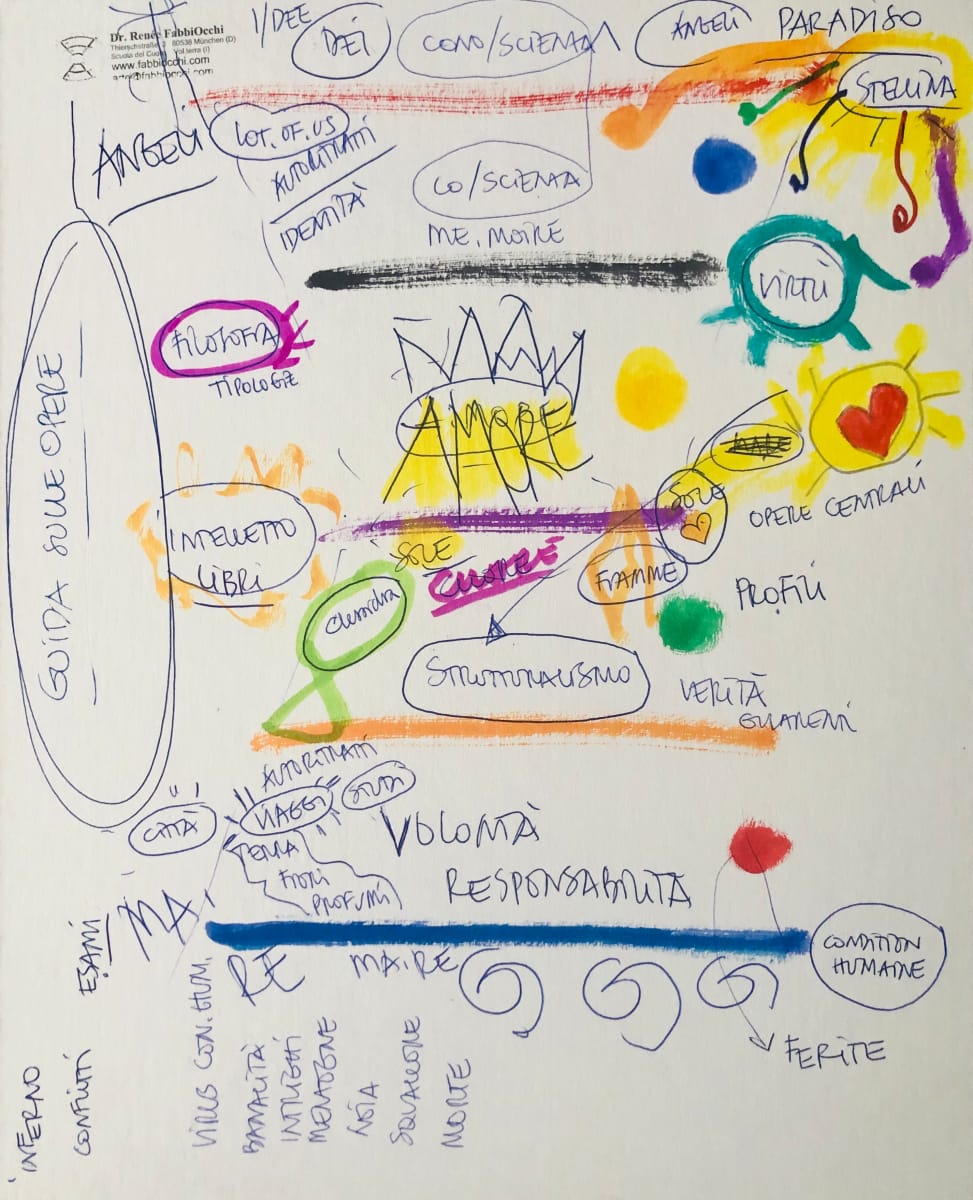 Dr. Renée FabbiOcchi
Thierschstraße 3 80538 München (D)
Scuola del Cuore Volterra (I)
www.fabbiocchi.com
I/DEE
DEI
CONO/SCIENZA
ANGELI
PARADISO
STELLINA
ANGELI
LOT.OF.US
AUTORITRATTI
IDENTITÀ
CO/SCIENZA
ME.MOIRE
VIRTÙ
FILOSOFIA
TIPOLOGIE
AMORE
GUIDA SULLE OPERE
INTELLETTO
LIBRI
SOLE
OPERE CENTRALI
SOLE
CUORE
FIAMME
PROFILI
Clessidra
STRUTTURALISMO
VERITÀ
AUTORITRATTI
VIAGGI
STUDI
CITTÀ
TERRA
FIORI
PROFUMI
VOLONTÀ
RESPONSABILITÀ
MA
RE
MA.RE
CONDITION
HUMAINE
FERITE
ESAMI
INFERNO
CONFLITTI
VIRUS CON.HUM.
BANALITÀ
INTRIGHI
MENZOGNE
NOIA
SQUALLORE
MORTE